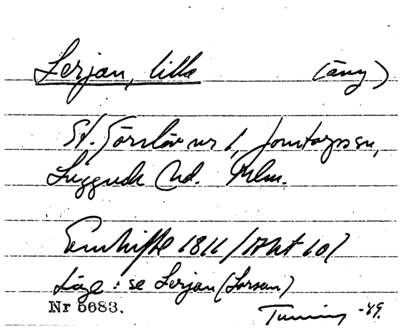 Lerjan, lilla (äng)
St. Törslöv nr 1, Jonstorps sn,
Luggude hd. Mlm.
Enskifte 1811 /Akt 10/
Läge: se Lerjan (Larsson)
Nr 5683. Tuning -49.